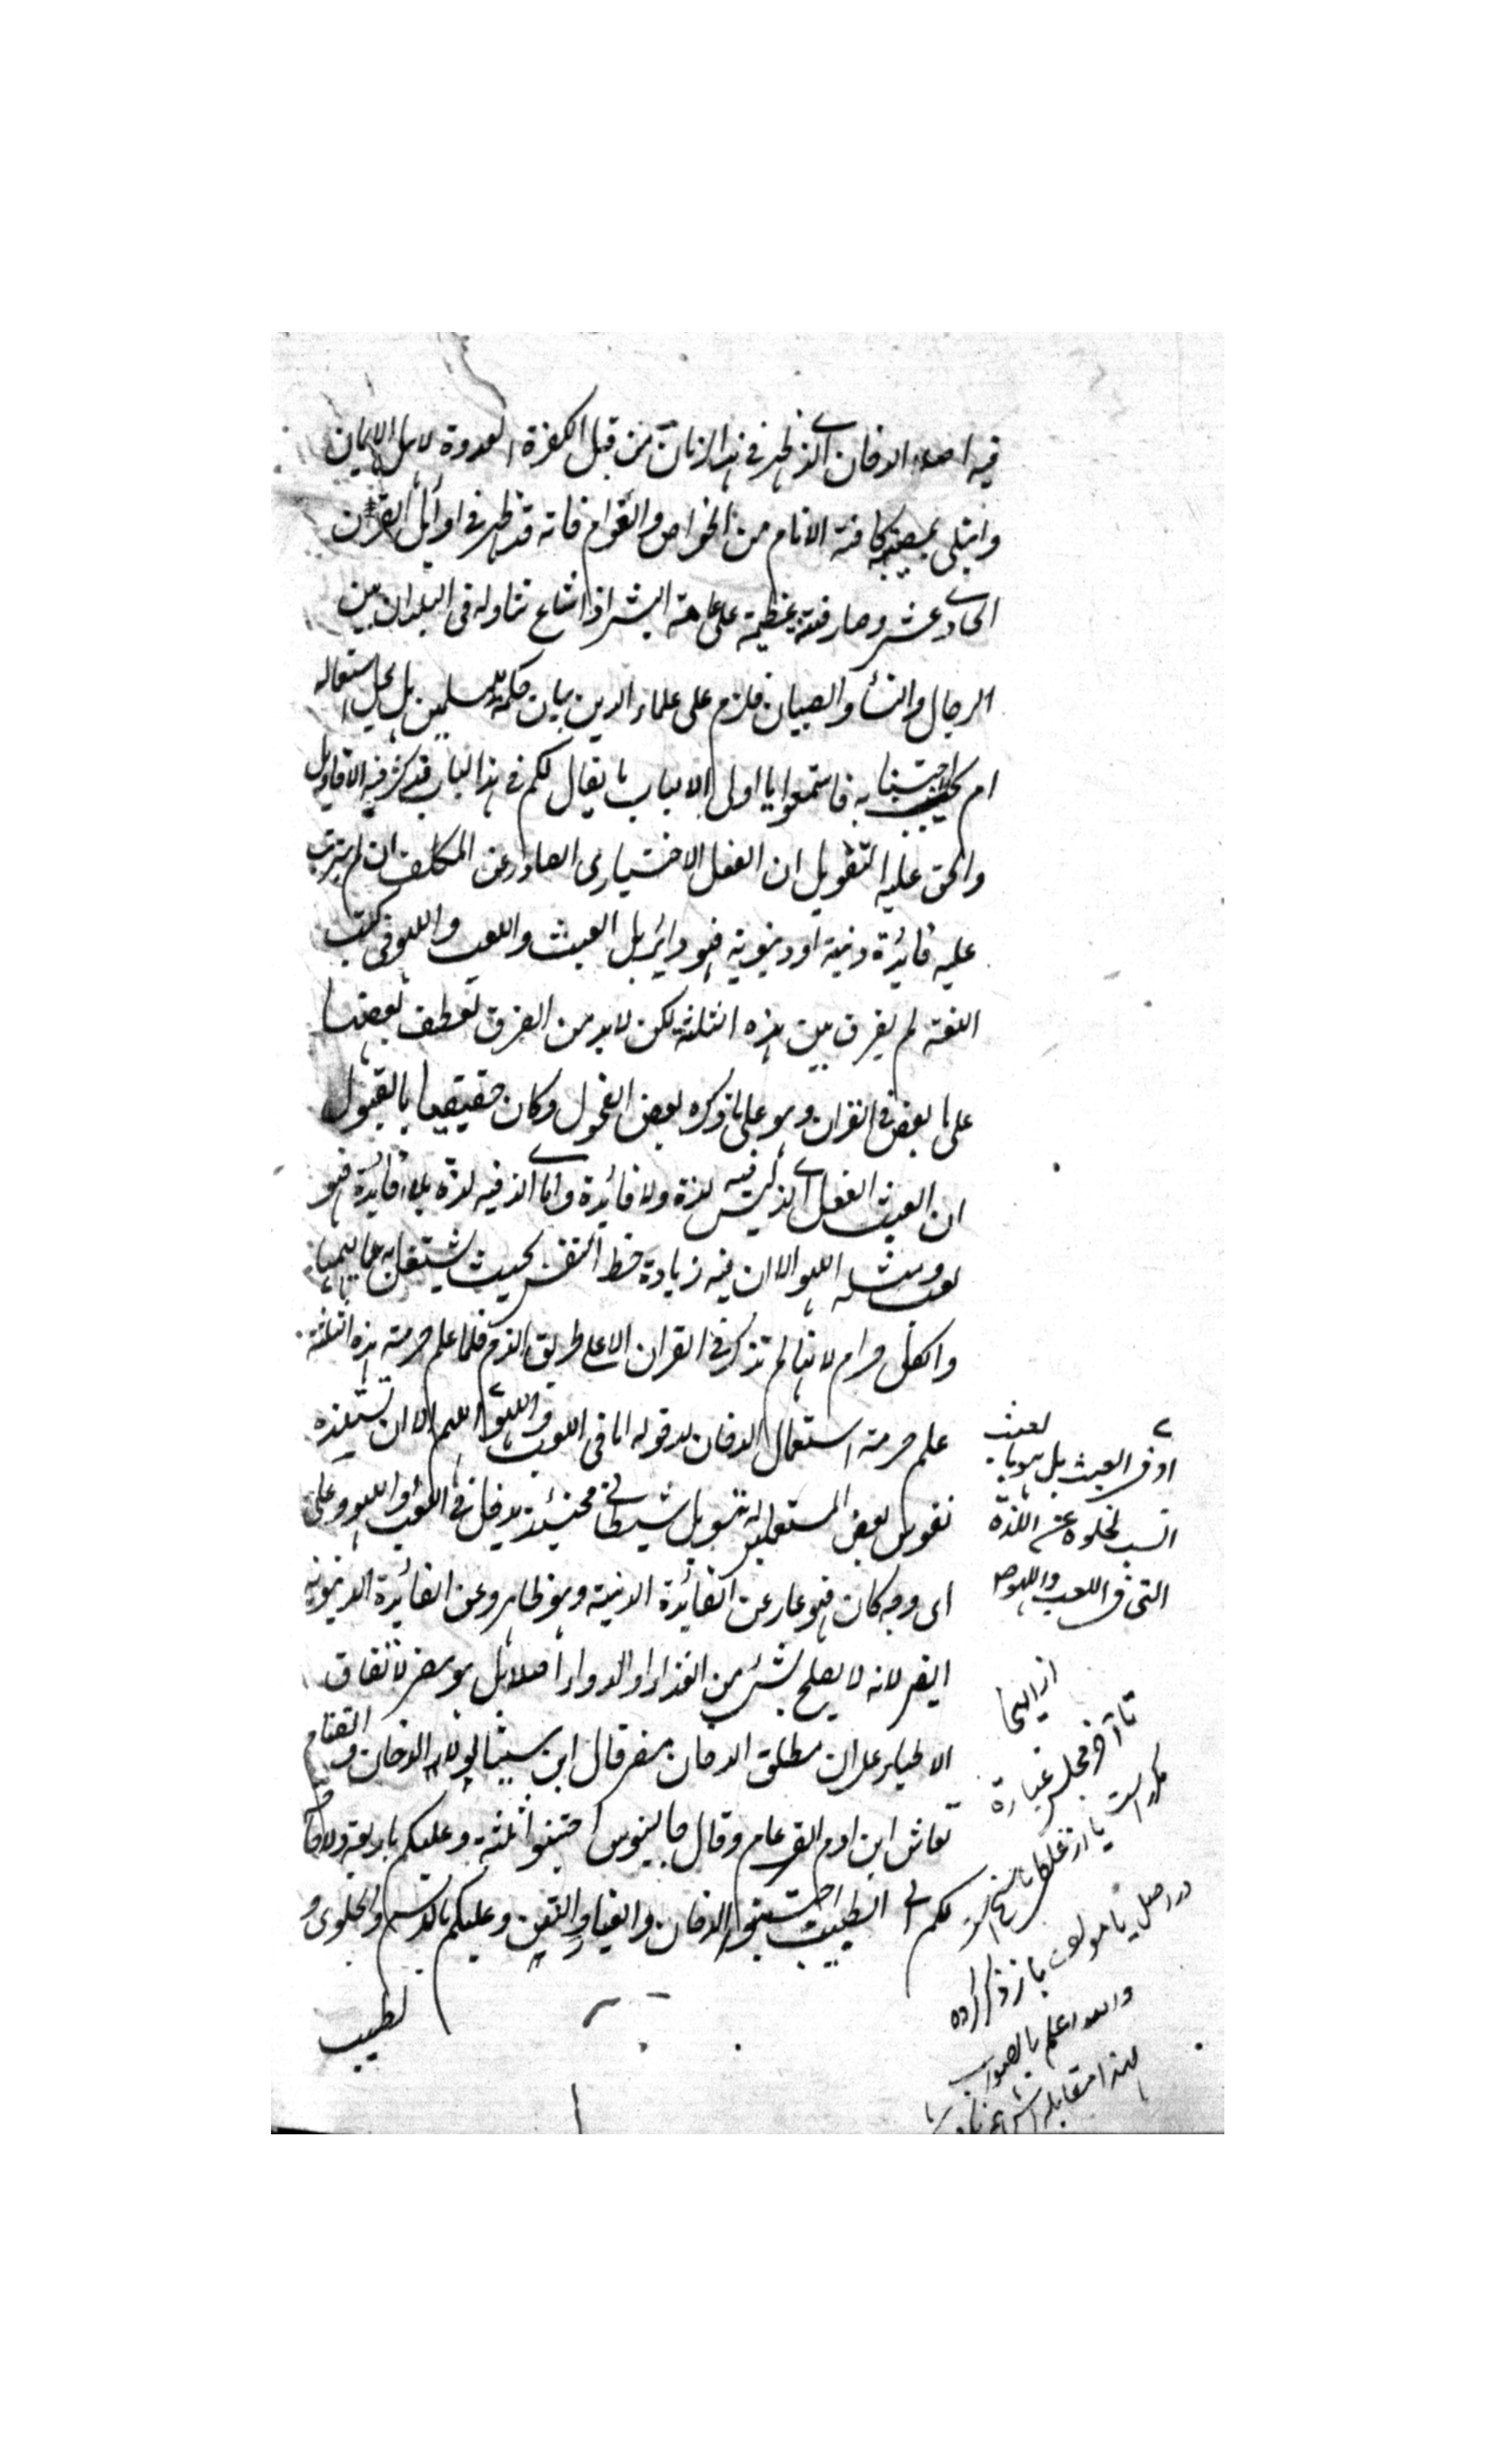 فيه اصلا الدخان الذى ظهر فى هذا الزمان من قبل الكفرة العدوة لاهل الايمان
وابتلى بمصيبته كافة الانام من الخواص والعوام فانه قد ظهر فى اوائل القرن
الحادى عشر وصار فتنة عظيمة على عامة البشر اذ اشاع تناوله فى البلدان بين
الرجال والنسأ والصبيان فلزم على علماء الدين بيان حكمه للمسلمين هل يحل استعماله
ام يجب اجتنابه فاستمعوا يا اولى الالباب ما يقال لكم فى هذا الباب قد كثر فيه الاقاويل
والحق عليه التعويل ان الفعل الاختيارى الصادر عن المكلف ان لم يترتب
عليه فائدة دينية او دنيوية فهو دائر بين العبث واللعب واللهو فى كتب
اللغة لم يفرق بين هذه الثلثة لكن لا بد من الفرق لعطف بعضها
على بعض فى القران وهو على ما ذكره بعض الفحول وكان حقيقيا بالقبول
ان العبث الفعل الذى ليس فيه لذة ولا فائدة واما الذى فيه لذة بلا فائدة فهو
لعب ومثله اللهو الا ان فيه زيادة حظ النفس بحيث يشتغل به عما يهمها
والكل حرام لانها لم تذكر فى القران الا على طريق الذم فلما علم حرمة هذه الثلثة
علم حرمة استعمال الدخان لدخوله اما فى اللعب واللهو اللهم الا ان تستلذه
نفوس بعض المستعملين له بتسويل شيطانى فحينئذ يدخل فى اللعب واللهو وعلى
اى وجه كان فهو عار عن الفائدة الدينية وهو ظاهر وعن الفائدة الدنيوية
ايضا لانه لا يصلح لشئ من الغذاء او الدواء اصلا بل هو مضر لاتفاق
الاطباء على ان مطلق الدخان مضر قال ابن سينا لولا الدخان والقتام
لعاش ابن ادم الف عام وقال جالينوس اجتنبوا ثلثة وعليكم باربعة ولا حاجة
لكم الى الطبيب اجتنبوا الدخان والغبار والنتن وعليكم بالدسم والحلوى و
لطيب
او فى العبث بل هو بالعبث
انسب لخلوه عن اللذة
التى فى اللعب واللهو صح
از اينجا
تا آخر مجلس عبارة
مكرر است يا از غلط ناسخ است
در اصل يا مولف باز ذكر كرده
والله اعلم بالصواب